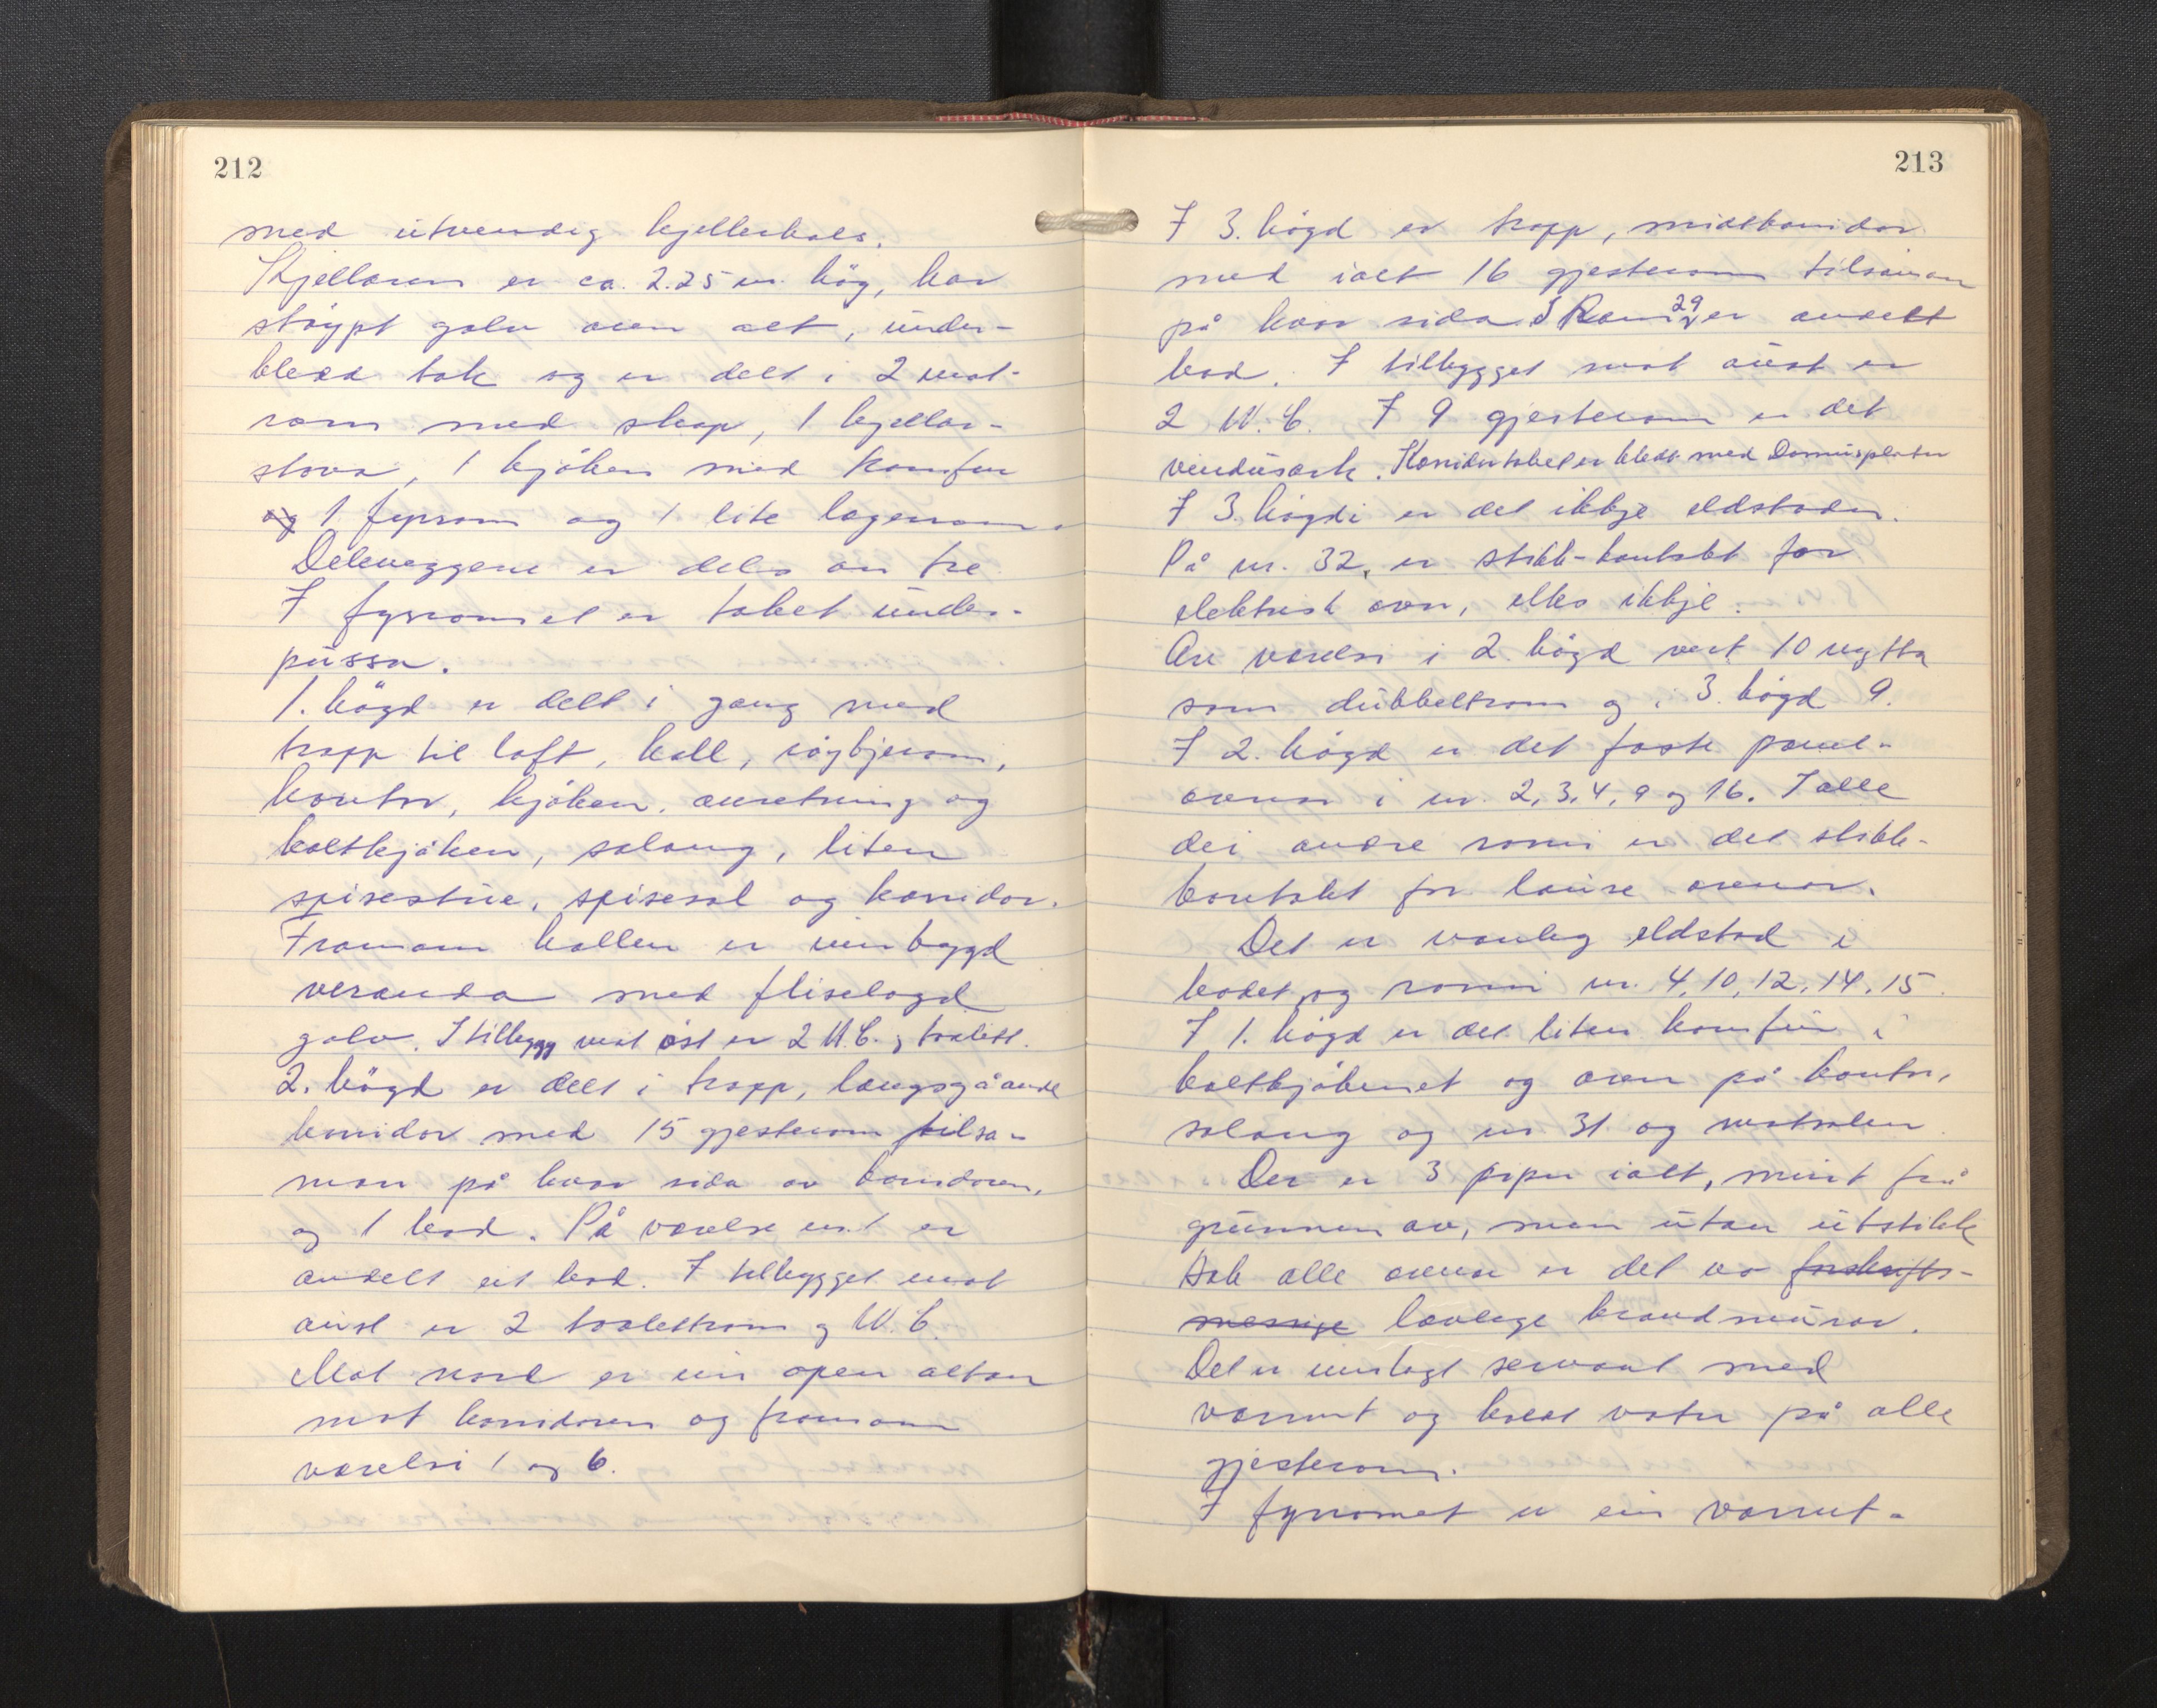 212
med utvendig kjellerhals.
Kjellaren er ca. 2.25 m. høg, har
støypt golv over alt, under-
kledd tak og er delt i 2 mat-
rom med skap, 1 kjellar-
stova, 1 kjøken med komfyr
og 1 fyrrom og 1 lite lagerrom.
Deleveggene er dels av tre
I fyrromet er taket under-
pussa.
1. høgd er delt i gang med
trapp til loft, hall, røykjerom,
kontor, kjøken, anretning og
kaltkjøken, salong, liten
spisestue, spisesal og korridor.
Framom hallen er innbygd
veranda med fliselagd
golv. I tilbygg mot øst er 2 W.C. og toalett.
2. høgd er delt i trapp, langsgåande
korridor med 15 gjesterom tilsa-
man på kvar sida av korridoren,
og 1 bad. På værelse nr. 1 er
avdelt eit bad. I tilbygget mot
aust er 2 toalettrom og W.C.
Mot nord er ein open altan
mot korridoren og framom
værelsi 1 og 6.
213
I 3. høgd er trapp, midtkorridor
med ialt 16 gjesterom tilsaman
på kvar sida. I Rom 29 er avdelt
bad. I tilbygget mot aust er
2 W.C. I 9 gjesterom er det
vindusark. Korridortaket er kledt med Domusplater
I 3. høgdi er det ikkje eldstader.
På nr. 32, er stikk-kontakt for
elektrisk ovn, elles ikkje.
Av værelsi i 2. høgd vert 10 nytta
som dubbeltrom og i 3. høgd 9.
I 2. høgd er det faste panel-
ovnar i nr. 2, 3, 4, 9 og 16. I alle
dei andre romi er det stikk-
kontakt for lause ovnar.
Det er vanleg eldstad i
badet og romi nr. 4, 10, 12, 14, 15.
I 1. høgd er det liten komfur i
kaltkjøkenet og ovn på kontor,
salong og nr 31 og matsalen
Der er 3 piper ialt, murt frå
grunnen av, men utan utstikk
Bak alle ovnar er det no forskrifts-
messige lovlege brandmurar.
Det er innlagt servant med
varmt og kaldt vatn på alle
gjesterom.
I fyrromet er ein varmt-